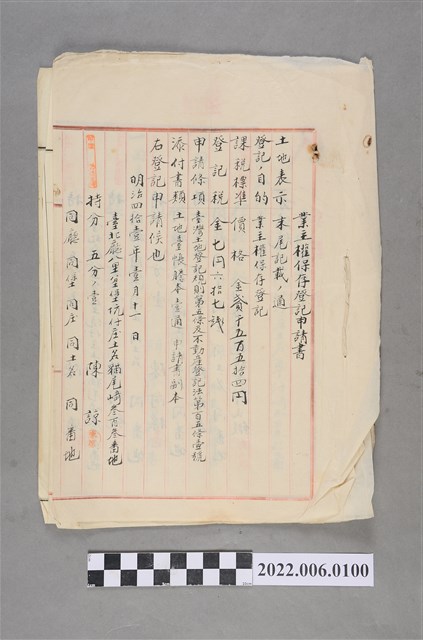 業主權保存登記申請書
土地表示 末尾記載ノ通
登記ノ目的 業主權保存登記
課稅標準價格 金貳千五百五拾四円
登記稅 金七円六拾七錢
申請條項 臺灣土地登記稅則第五條及不動產登記法第百五條壹號
添付書類 土地臺帳謄本壹通 申請書副本
右登記申請候也
明治四拾壹年壹月十一日
臺北廳八里坌堡坑仔庄土名貓尾崎叁百叁番地
持分 五分ノ壹 陳諒
同廳同堡同庄同土名 同番地
2022.006.0100